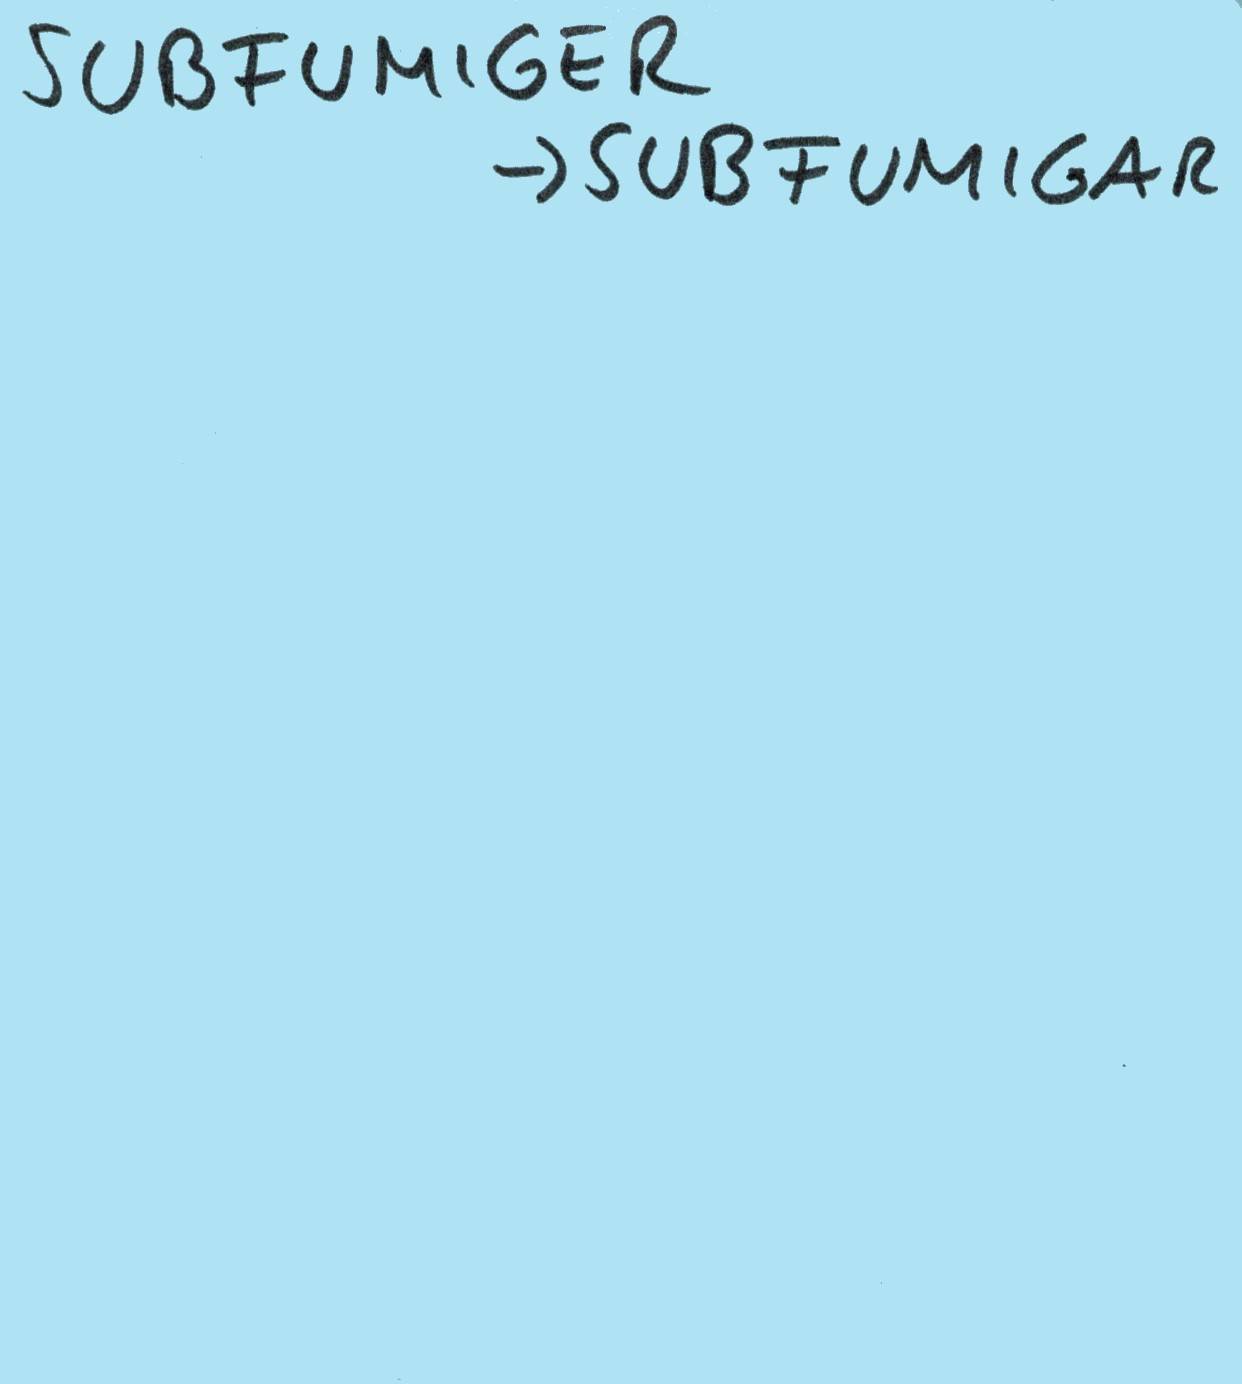 SUBFUMIGER
→SUBFUMIGAR